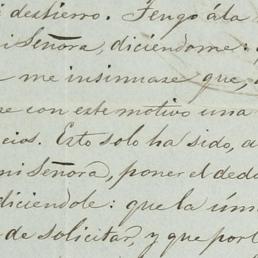 destierro. Tengo á la
mi Señora, diciendome:
me insinuase que,
con este motivo una
cios. Esto solo ha sido, a
mi Señora, poner el dedo
diciendole: que la úni
de solicitar, y que por l